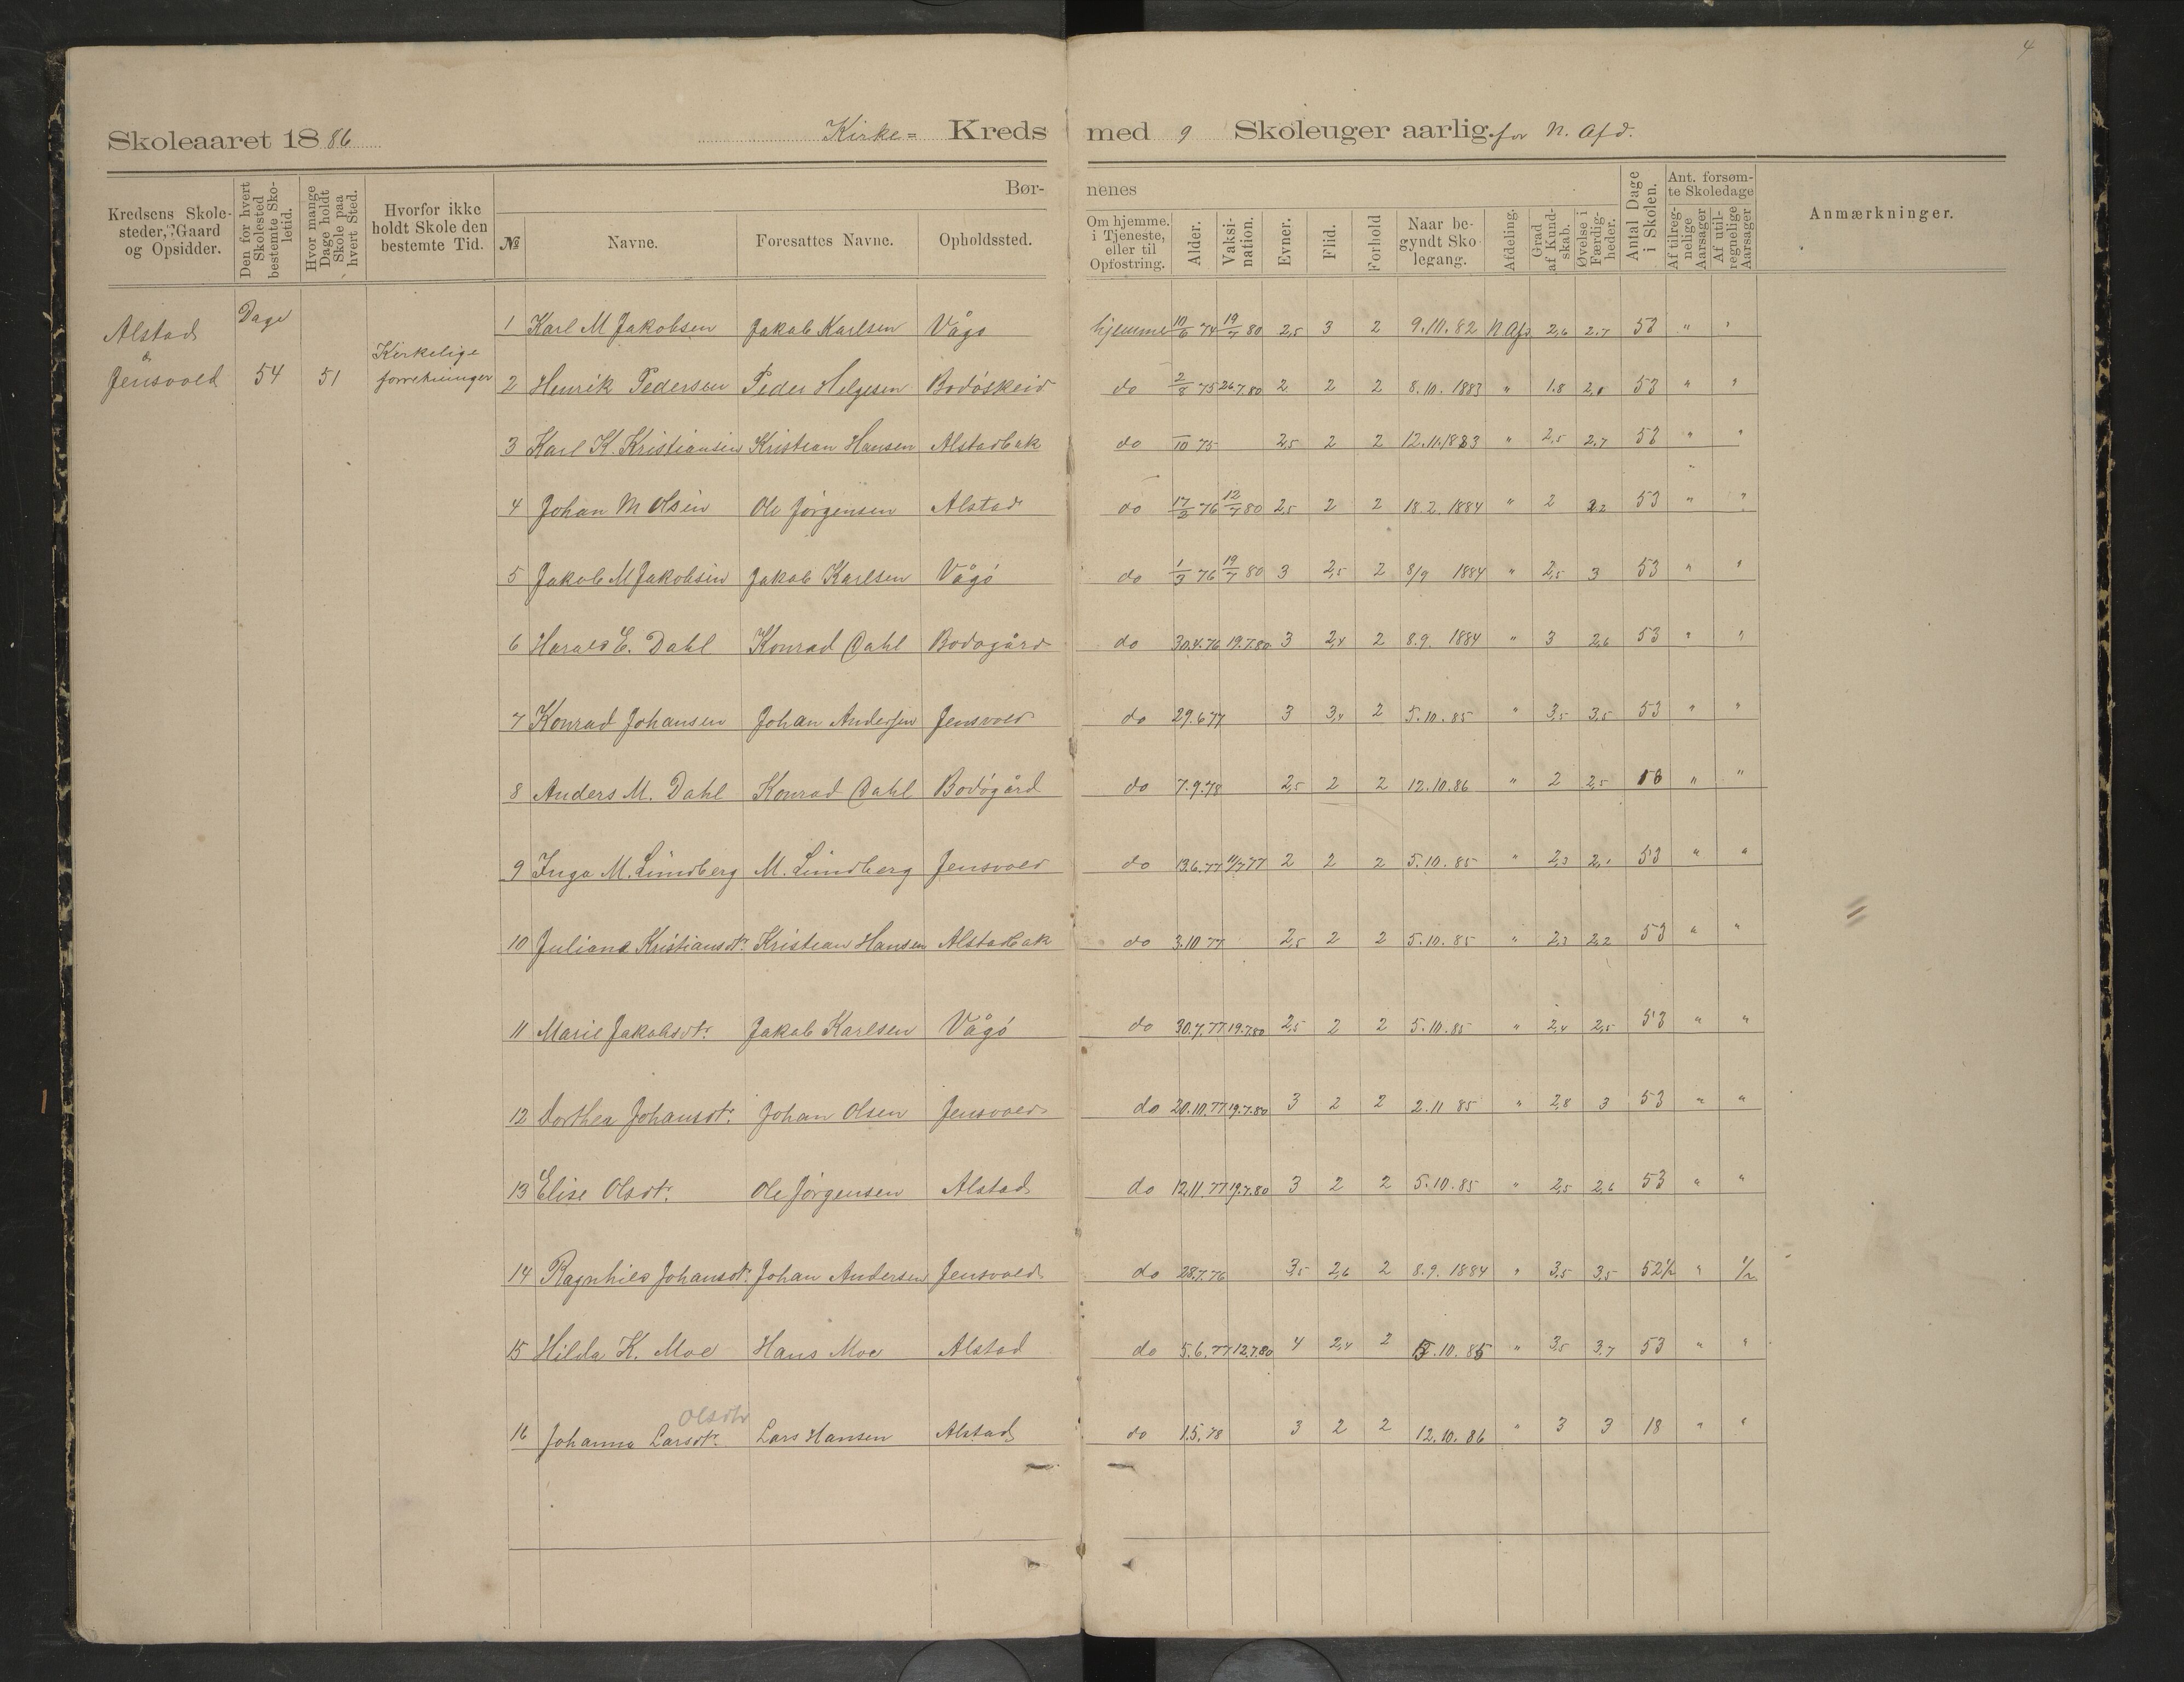 4
Skoleaaret 1886 Kirke= Kreds med 9 Skoleuger aarlig for N. Afd.
Kredsens Skolesteder, Gaard og Opsidder.
Den for hvert Skolested bestemte Skoletid.
Hvor mange Dage holdt Skole paa hvert Sted.
Hvorfor ikke holdt Skole den bestemte Tid.
Børnenes
№ Navne. Foresattes Navne. Opholdssted. Om hjemme. i Tjeneste, eller til Opfostring. Alder. Vaksination. Evner. Flid. Forhold Naar begyndt Skolegang. Afdeling. Grad af Kundskab. Øvelse i Færdigheder. Antal Dage i Skolen. Ant. forsømte Skoledage Af tilregnelige Aarsager Af utilregnelige Aarsager Anmærkninger.
Alstad & Jensvold
Dage
54 51 Kirkelige forretninger
1 Karl M Jakobsen Jakob Karlsen Vågø hjemme 10/6 74 19/7 80 2,5 3 2 9.10.82 N Afd 2,6 2.7 53 " "
2 Henrik Pedersen Peder Helgesen Bodöskeid do 2/8 75 26.7.80 2 2 2 8.10.1883 " 1.8 53 " "
3 Karl K. Kristiansen Kristian Hansen Alstadbak do /10 75 2,5 2 2 12.11.1883 " 2,5 2.7 53 " "
4 Johan M Olsen Ole Jörgensen Alstad do 17/2 76 12/7 80 2,5 2 2 18.2.1884 " 2 2.2 53 " "
5 Jakob M Jakobsen Jakob Karlsen Vågö do 1/3 76 19/7 80 3 2,5 2 8/9 1884 " 2,5 3 53 " "
6 Harald E. Dahl Konrad Dahl Bodögård do 30.4.76 19.7.80 3 2,4 2 8.9. 1884 " 3 2,6 53 " "
7 Konrad Johansen Johan Andersen Jensvold do 29.6 77 3 3,4 2 5.10.85 " 3,5 3,5 53 " "
8 Anders M. Dahl Konrad Dahl Bodögård do 7.9.78 2,5 2 2 12.10.86 " 2 2,5 " "
9 Inga M. Lundberg M. Lundberg Jensvold do 13.6.77 11/7 77 2 2 2 5.10.85 " 2,3 2,1 53 " "
10 Juliana Kristiansdtr. Kristian Hansen Alstadbak do 3.10 77 2,5 2 2 5.10.85 " 2,3 2,2 53 " "
11 Marie Jakobsdtr. Jakob Karlsen Vågö do 30.7.77 19.7.80 2,5 2 2 5.10.85 " 2,4 2,5 53 " "
12 Dorthea Johansdtr. Johan Olsen Jensvold do 20.10.77 19.7.80 3 2 2 2.11 85 " 2,8 3 53 " "
13 Elise Olsdtr. Ole Jörgensen Alstad do 12.11.77 19.7.80 3 2 2 5.10.85 " 2,5 2,6 53 " "
14 Ragnhild Johansdtr. Johan Andersen Jensvold do 28.7.76 3,5 2,6 2 8.9. 1884 " 3,5 3,5 52½ " ½
15 Hilda K. Moe Hans Moe Alstad do 5.6.77 12.7.80 4 2,4 2 5.10.85 " 3,5 3,7 53 " "
Olsdtr
16 Johanna Larsdtr. Lars Hansen Alstad do 1.5.78 3 2 2 12.10.86 " 3 3 18 " "